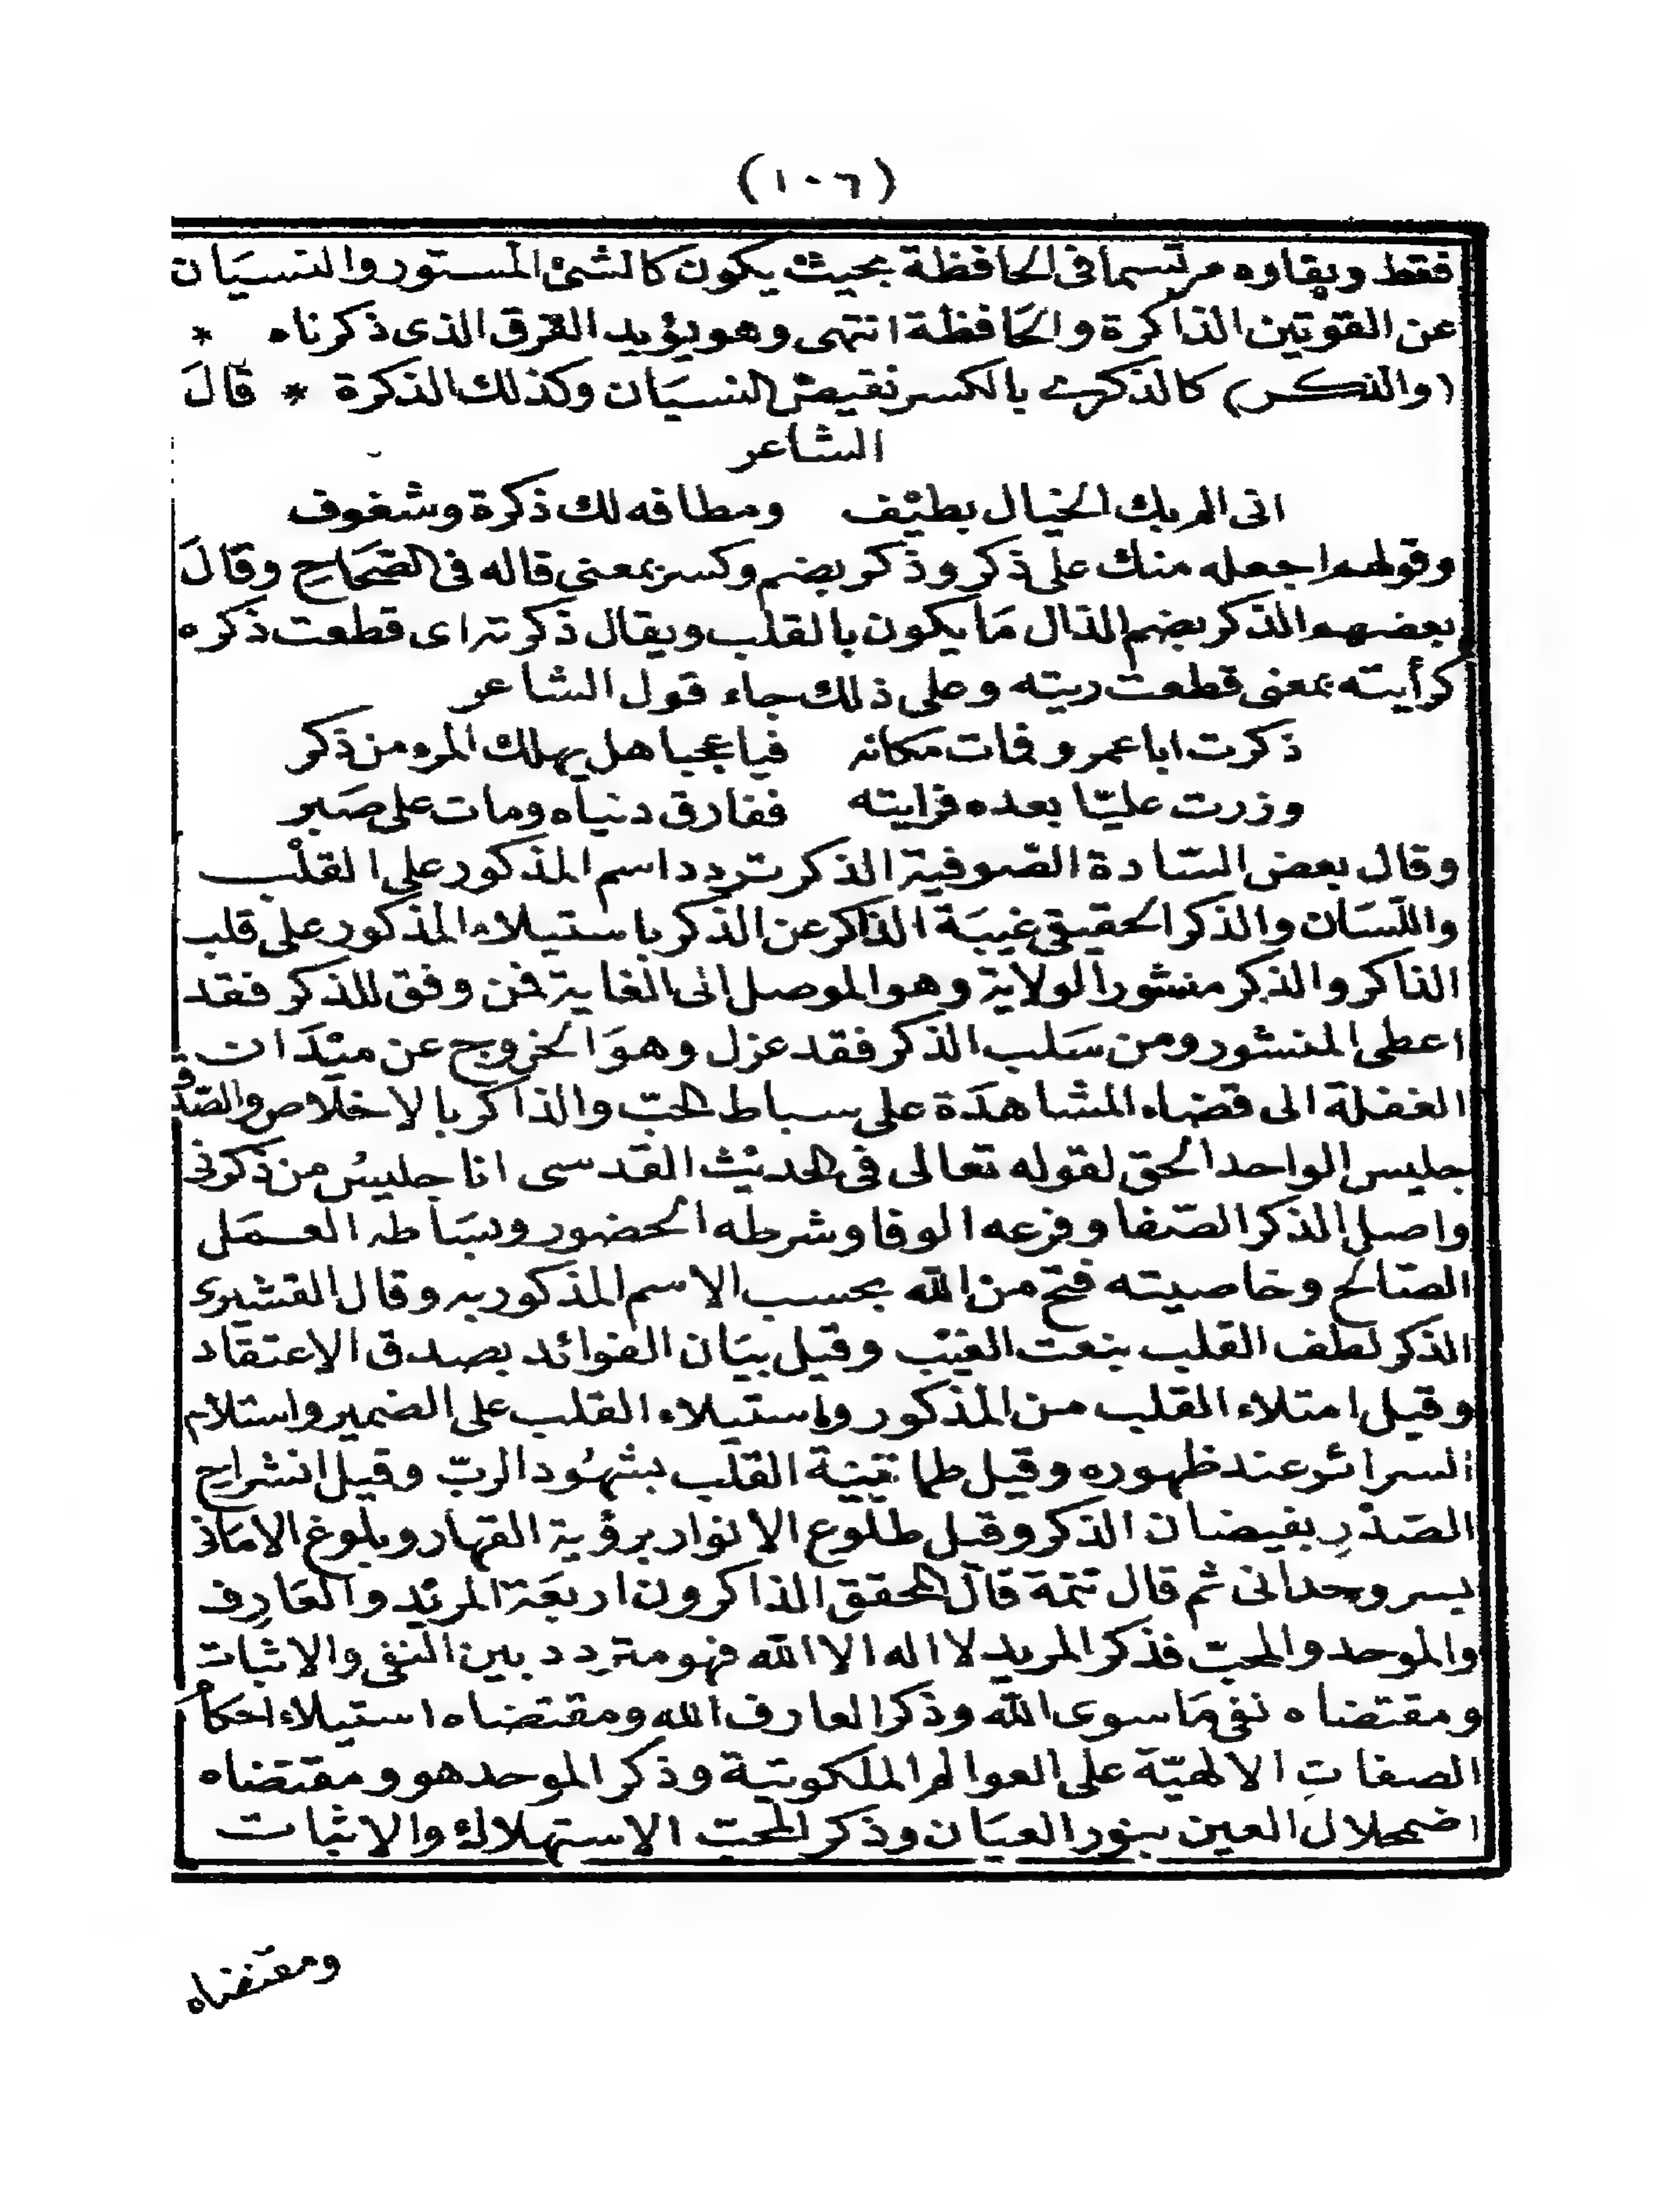 (١٠٦)
فقط وبقاوه مرتسما فى الحافظة بحيث يكون كالشئ المستور والنسيان
عن القوتين الذاكرة والحافظة انتهى وهو يؤيد الفرق الذى ذكرناه *
(والذكر) كالذكرى بالكسر نقيض النسيان وكذلك الذكرة * قال
الشاعر
انى الم بك الخيال يطيف ومطافه لك ذكرة وشغوف
وقولهم اجعله منك على ذكر وذكر بضم وكسر بمعنى قاله فى الصحاح وقال
بعضهم الذكر بضم الذال ما يكون بالقلب ويقال ذكرته اى قطعت ذكره
كرأيته بمعنى قطعت ريته وعلى ذلك جاء قول الشاعر
ذكرت ابا عمرو فمات مكانه فيا عجبا هل يهلك المرء من ذكر
وزرت عليّا بعده فرايته ففارق دنياه ومات على صبر
وقال بعض السّادة الصّوفية الذكر تردد اسم المذكور على القلب
واللّسان والذكر الحقيقى غيبة الذاكر عن الذكر باستيلاء المذكور على قلب
الذاكر والذكر منشور الولاية وهو الموصل الى الغاية فمن وفق للذكر فقد
اعطى المنشور ومن سلب الذكر فقد عزل وهو الخروج عن ميدان
الغفلة الى فضاء المشاهدة على بساط الحبّ والذاكر بالاخلاص والصّدق
جليس الواحد الحق لقوله تعالى فى الحديث القدسى انا جليس من ذكرنى
واصل الذكر الصّفا وفرعه الوفا وشرطه الحضور وبساطه العمل
الصّالح وخاصيته فتح من الله بحسب الاسم المذكور به وقال القشيرى
الذكر لطف القلب بنعت الغيب وقيل بيان الفوائد بصدق الاعتقاد
وقيل امتلاء القلب من المذكور واستيلاء القلب على الضمير واستلام
السرائر عند ظهوره وقيل طمانينة القلب بشهود الربّ وقيل انشراح
الصّدر بفيضان الذكر وقيل طلوع الانوار برؤية القهار وبلوغ الامانى
بسر وحدانى ثم قال تتمة قال المحقق الذاكرون اربعة المريد والعارف
والموحد والمحبّ فذكر المريد لا اله الا الله فهو متردد بين النفى والاثبات
ومقتضاه نفى ما سوى الله وذكر العارف الله ومقتضاه استيلاء احكام
الصفات الالهيّة على العوالم الملكوتية وذكر الموحد هو ومقتضاه
اضمحلال العين بنور العيان وذكر المحبّ الاستهلاك والاثبات
ومقتضاه